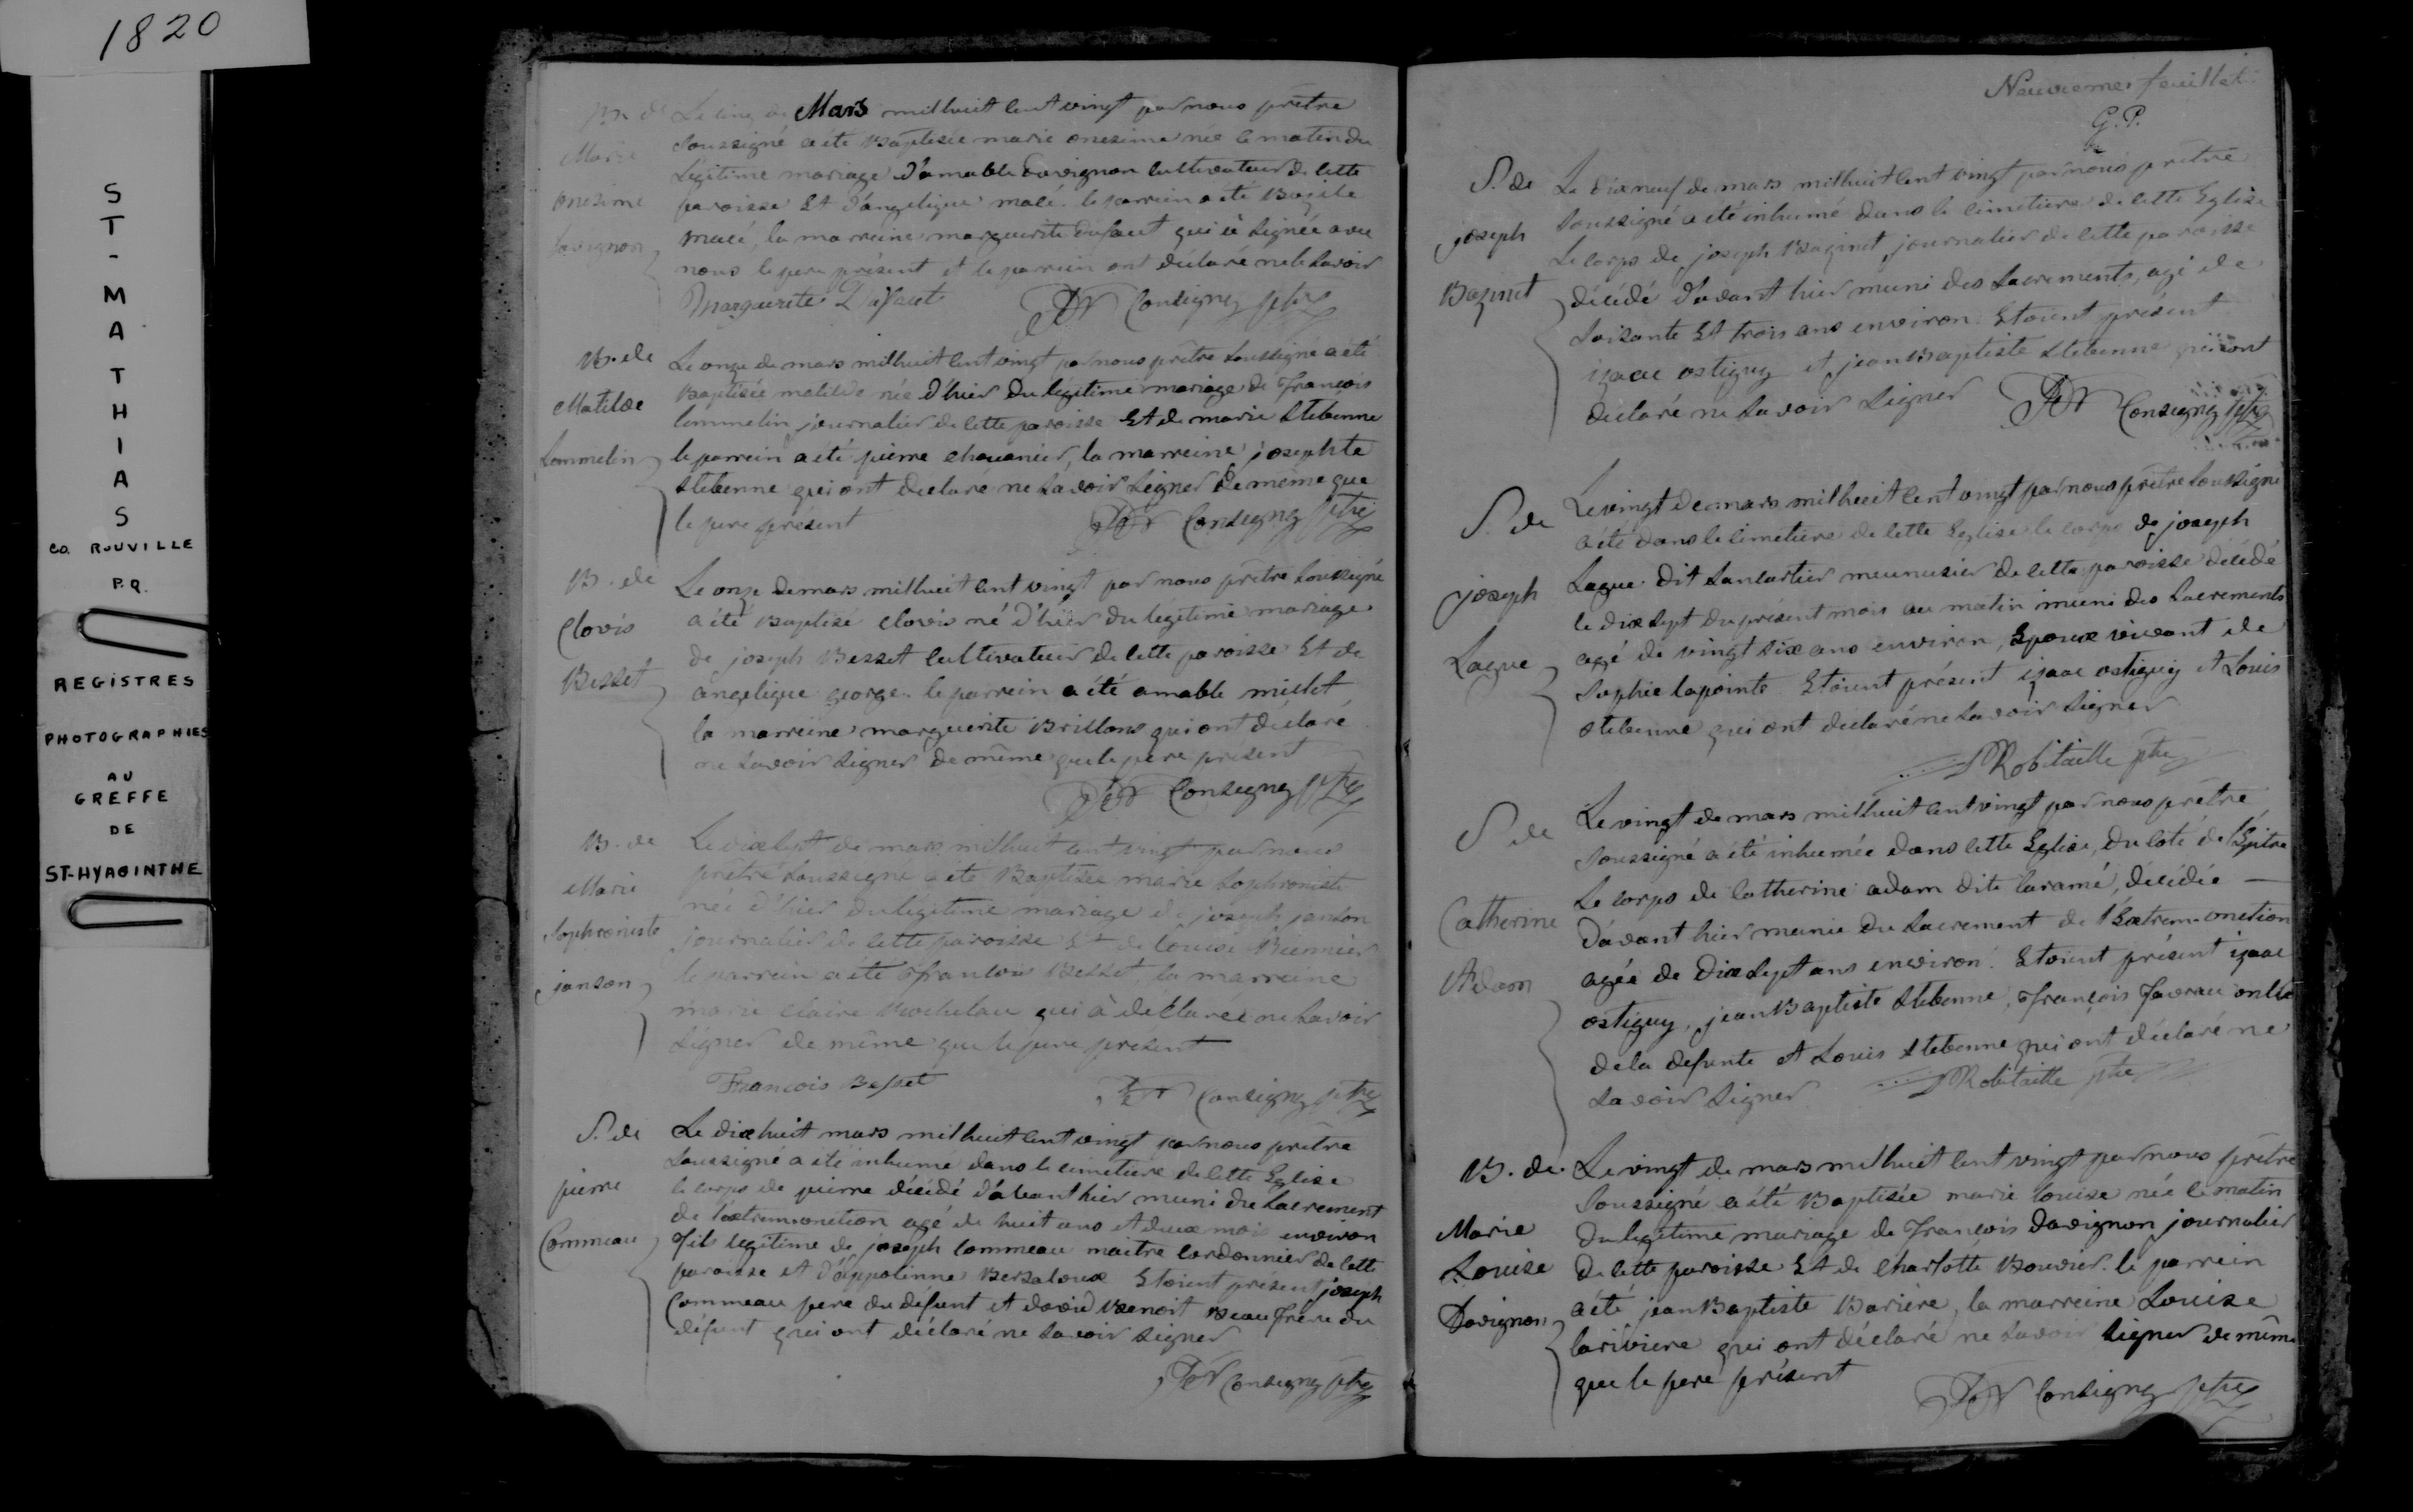 1820
ST-MATHIAS
CO. ROUVILLE
P.Q.
REGISTRES
PHOTOGRAPHIES
AU
GREFFE
DE
ST-HYACINTHE
B. de
Marie
onesime
Davignon
Le cinq de Mars mil huit cent vingt par nous prêtre
soussigné a été Baptisée marie onesime née le matin du
légitime mariage d'amable davignon cultivateur de cette
paroisse Et d'angelique macé. le parrein a été Bazile
macé, la marreine marguerite dufaut qui a signée avec
nous le pere présent et le parrein ont déclaré ne le savoir
Marguerite Dufaut
Consigny ptre
B. de
Matilde
Lommelin
Le onze de mars mil huit cent vingt par nous prêtre soussigné a été
Baptisée matilde née d'hier du légitime mariage de François
lommelin journalier de cette paroisse Et de marie stebenne
le parrein a été pierre chouanier, la marreine josephte
stebenne qui ont declaré ne savoir signer de même que
le pere présent
Consigny ptre
B. de
Clovis
Besset
Le onze de mars mil huit cent vingt par nous prêtre soussigné
a été Baptisé clovis né d'hier du légitime mariage
de joseph Besset cultivateur de cette paroisse Et de
angelique george. le parrein a été amable millet
la marreine marguerite Brillon qui ont déclaré
ne savoir signer de même que le pere présent
Consigny ptre
B. de
Marie
Sophroniste
janson
Le dix sept de mars mil huit cent vingt par nous
prêtre soussigné a été Baptisée marie sophroniste
née d'hier du legitime mariage de joseph janson
journalier de cette paroisse Et de Louise Bernier
le parrein a été François Besset, la marreine
marie claire Rochelau qui à declarée ne savoir
signer de même que le pere présent
François Besset
Consigny ptre
S. de
pierre
Commeau
Le dix huit mars mil huit cent vingt par nous prêtre
soussigné a été inhumé dans le cimetiere de cette Eglise
le corps de pierre décédé d'avant hier muni du sacrement
de l'extremonction agé de huit ans et deux mois environ
Fils legitime de joseph commeau maitre cordonnier de cette
paroisse et d'appolinne Berzaloux Etoient présent joseph
Commeau pere du défunt et david Benoit Beau frere du
défunt qui ont déclaré ne savoir signer
Consigny ptre
Neuvieme feuillet
G. P.
S. de
joseph
Bazinet
Le dix neuf de mars mil huit cent vingt par nous prêtre
soussigné a été inhumé dans le cimetiere de cette Eglise
Le corps de joseph Bazinet journalier de cette paroisse
décédé d'avant hier muni des sacrements, agé de
soisante Et trois ans environ. Etoient présent
izaac ostiguy et jean Baptiste stebenne qui ont
declaré ne savoir signer
Consigny ptre
S. de
joseph
Lague
Le vingt de mars mil huit cent vingt par nous prêtre soussigné
a été dans le cimetiere de cette Eglise le corps de joseph
Lague dit sancartier meunusier de cette paroisse décédé
le dix sept du présent mois au matin muni des sacrements
agé de vingt six ans environ, Epoux vivant de
Sophie lapointe Etoient présent izaac ostiguy et Louis
stebenne qui ont declaré ne savoir signer
Robitaille ptre
S de
Catherine
Adam
Le vingt de mars mil huit cent vingt par nous prêtre
soussigné a été inhumée dans cette Eglise, du coté de l'Epitre
Le corps de Catherine adam dite laramé, décédée
d'avant hier munie du sacrement de l'Extrem-onction
agée de dix sept ans environ. Etoient présent izaac
ostiguy, jean Baptiste stebenne, François Favreau oncle
de la defunte et Louis stebenne qui ont déclaré ne
savoir signer
Robitaille ptre
B. de
Marie
Louise
Davignon
Le vingt de mars mil huit cent vingt par nous prêtre
soussigné a été Baptisée marie louise née le matin
du legitime mariage de François davignon journalier
de cette paroisse Et de charlotte Bouvier. le parrein
a été jean Baptiste Bariere, la marreine Louise
lariviere qui ont déclaré ne savoir signer de même
que le pere présent
Consigny ptre